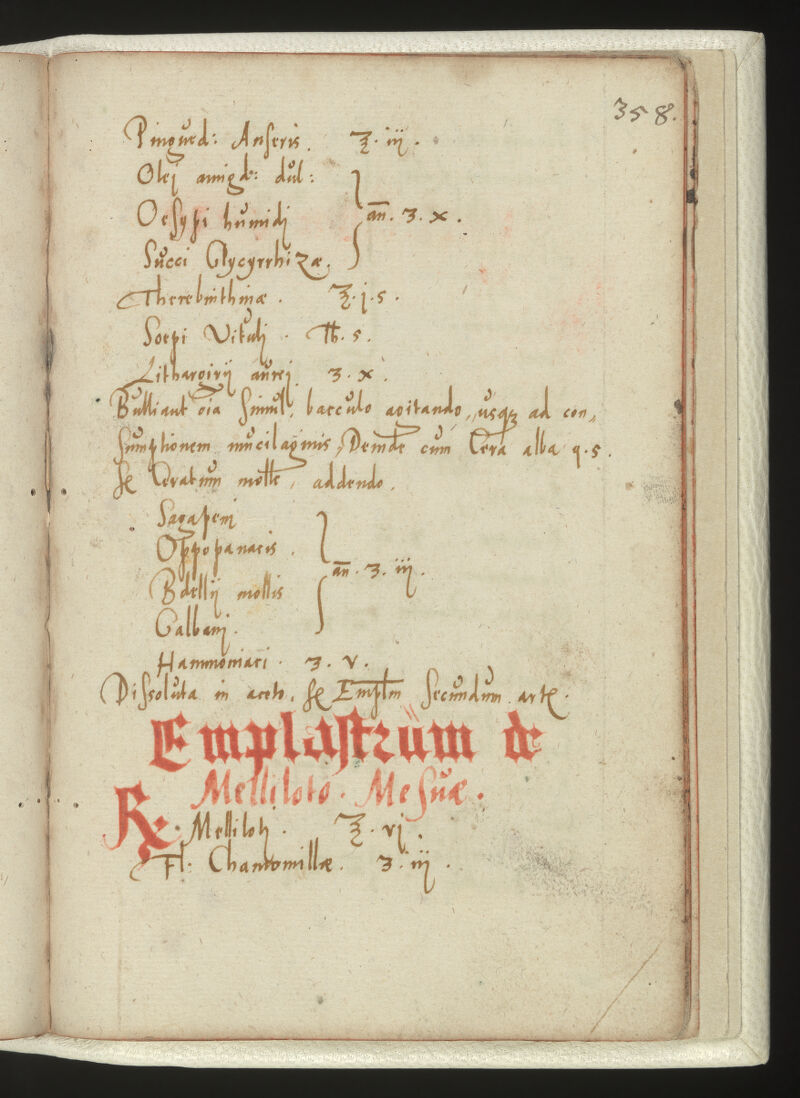 358.
Pingued: Anseris. ℥. iij.
Olej amigd: dul:
Oesypi humidj
an̄. ʒ. x.
Succi Glycyrrhizæ.
Therebinthinæ. ℥. j. s.
Soepi Vitulj. ℔. s.
Lithargirij aurej. ʒ. x.
Bulliant oīa Simul, bacculo agitando, usq₃ ad con„
sumptionem mucilaginis, Deinde cum Cera alba q. s.
fℯ Ceratum molle, addendo.
Sagapenj
Oppopanacis.
an̄. ʒ. iij.
Bdellij mollis
Galbanj.
Hammoniaci. ʒ. v.
Dissoluta in aceto, fℯ Empl̄m Secundum artē.
Emplastrum de
Melliloto. Mesuæ.
℞. Mellilotj. ℥. vj.
Fl: Chamomillæ. ʒ. iij.